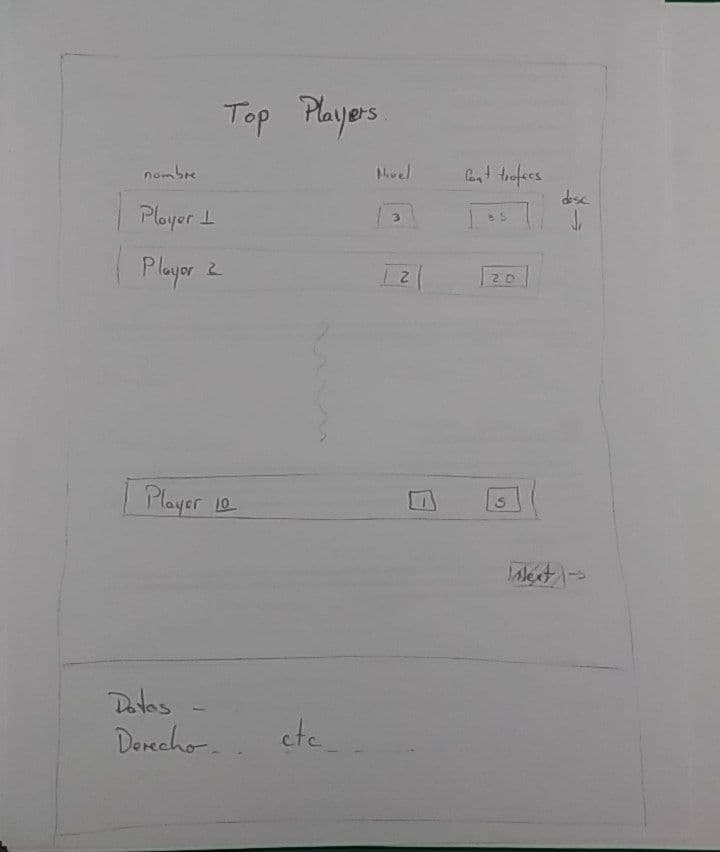 Top Players
nombre Nivel Cant trofeos
desc
Player 1 3 35
Player 2 2 20
Player 10 1 5
Next
Datos -
Derecho . . etc - - - .